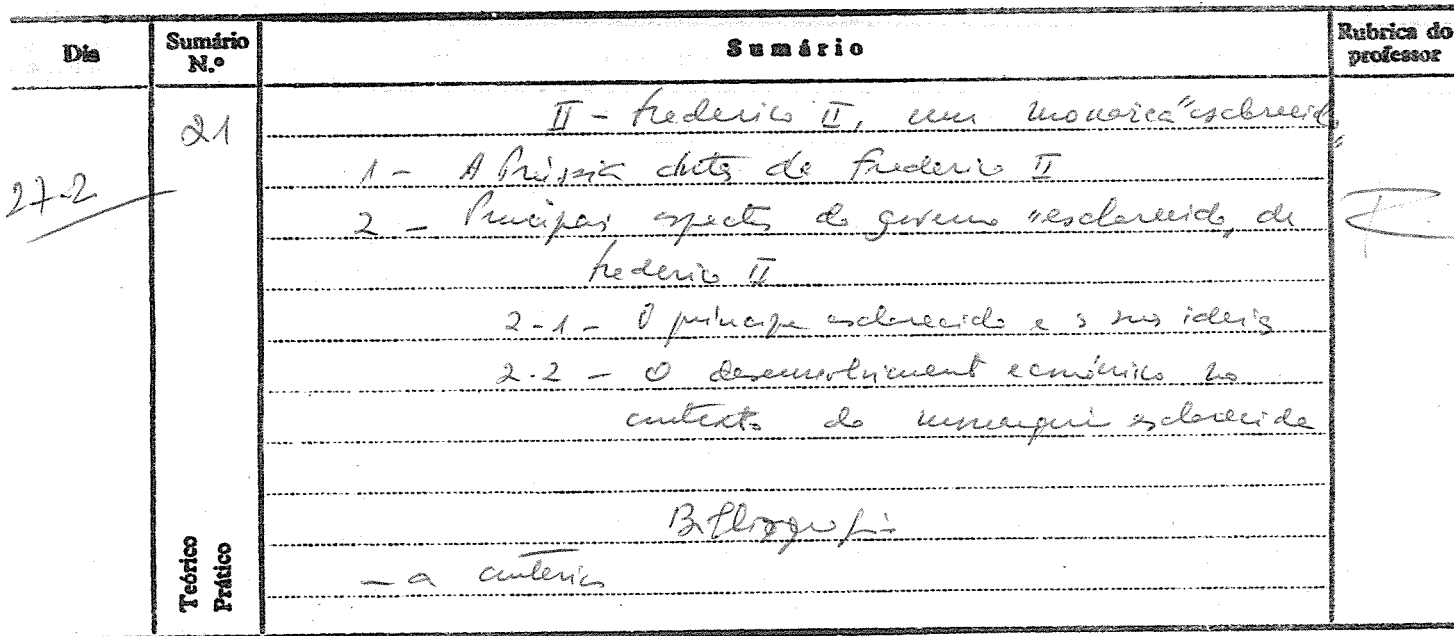 Dia Sumário N.º Sumário Rubrica do professor
21
II - Frederico II, um monarca "esclarecido"
27-2
1 - A Prússia antes de Frederico II
2 - Principais aspectos do governo "esclarecido" de
Frederico II
2-1 - O príncipe esclarecido e as suas ideias
2.2 - O desenvolvimento económico no
contexto da monarquia esclarecida
Bibliografia
- a anterior
Teórico
Prático